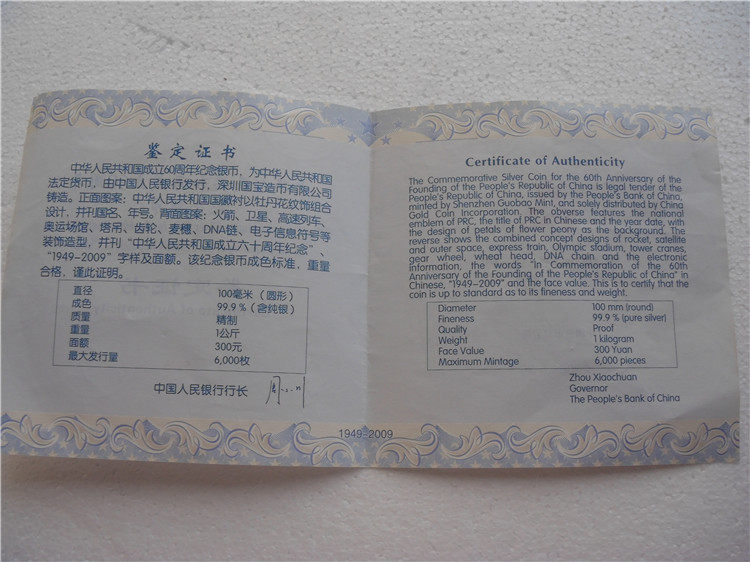 鉴定证书
中华人民共和国成立60周年纪念银币，为中华人民共和国
法定货币，由中国人民银行发行，深圳国宝造币有限公司
铸造。正面图案：中华人民共和国国徽衬以牡丹花纹饰组合
设计，并刊国名、年号。背面图案：火箭、卫星、高速列车、
奥运场馆、塔吊、齿轮、麦穗、DNA链、电子信息符号等
装饰造型，并刊“中华人民共和国成立六十周年纪念”、
“1949-2009”字样及面额。该纪念银币成色标准，重量
合格，谨此证明。
直径 100毫米（圆形）
成色 99.9％（含纯银）
质量 精制
重量 1公斤
面额 300元
最大发行量 6,000枚
中国人民银行行长
Certificate of Authenticity
The Commemorative Silver Coin for the 60th Anniversary of the
Founding of the People's Republic of China is legal tender of the
People's Republic of China, issued by the People's Bank of China,
minted by Shenzhen Guobao Mint, and solely distributed by China
Gold Coin Incorporation. The obverse features the national
emblem of PRC, the title of PRC in Chinese and the year date, with
the design of petals of flower peony as the background. The
reverse shows the combined concept designs of rocket, satellite
and outer space, express train, Olympic stadium, tower cranes,
gear wheel, wheat head, DNA chain and the electronic
information, the words "in Commemoration of the 60th
Anniversary of the Founding of the People's Republic of China" in
Chinese, "1949-2009" and the face value. This is to certify that the
coin is up to standard as to its fineness and weight.
Diameter 100 mm (round)
Fineness 99.9 % (pure silver)
Quality Proof
Weight 1 kilogram
Face Value 300 Yuan
Maximum Mintage 6,000 pieces
Zhou Xiaochuan
Governor
The People's Bank of China
1949-2009